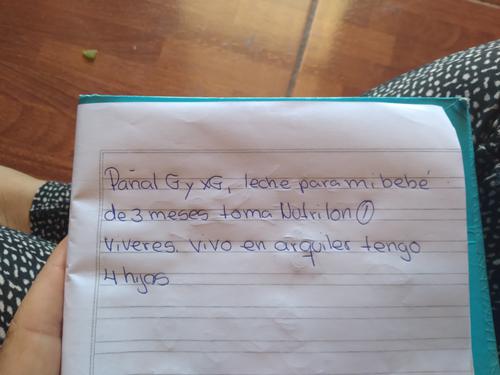 Pañal G y XG, leche para mi bebé
de 3 meses toma Nutrilon ①
viveres. vivo en arquiler tengo
4 hijos